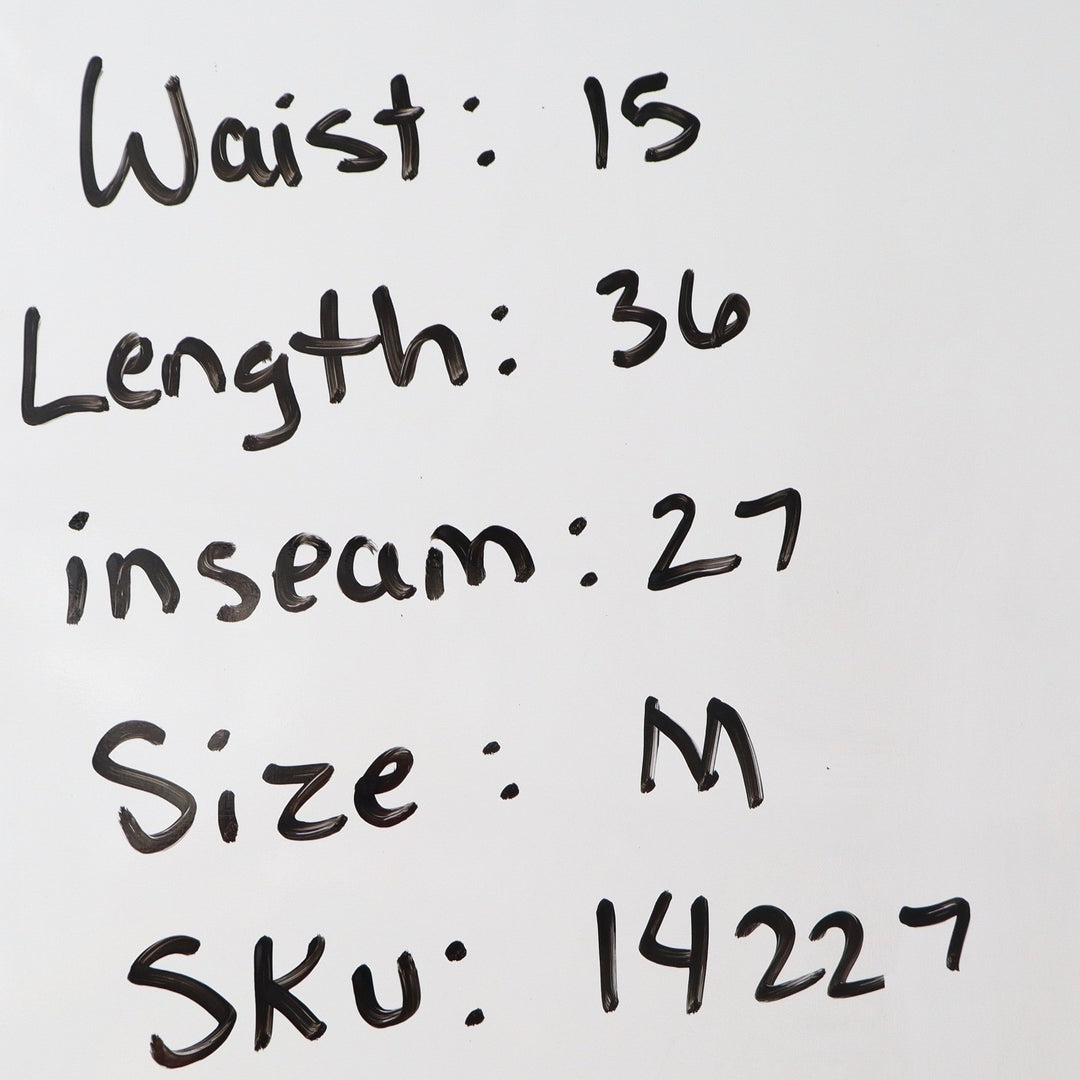 Waist: 15
Length: 36
inseam: 27
Size: M
SKU: 14227